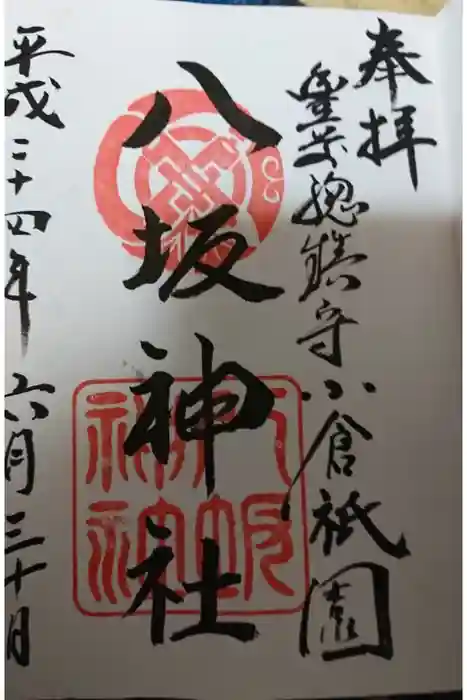 奉拝
豊前総鎮守小倉祇園
八坂神社
平成二十四年六月三十日